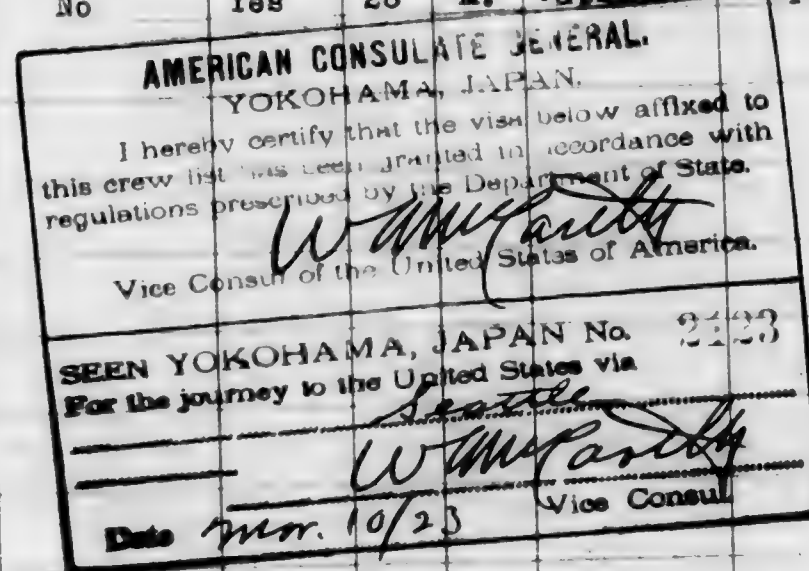 No Yes 28
AMERICAN CONSULATE GENERAL.
YOKOHAMA, JAPAN.
I hereby certify that the visa below affixed to
this crew list has been granted in accordance with
regulations prescribed by the Department of State.
Vice Consul of the United States of America.
SEEN YOKOHAMA, JAPAN No. 2123
For the journey to the United States via
Seattle
Vice Consul
Date Mar. 10/23